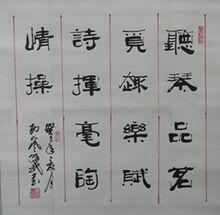 聽琴品茗
覓趣樂賦
詩揮毫陶
情操